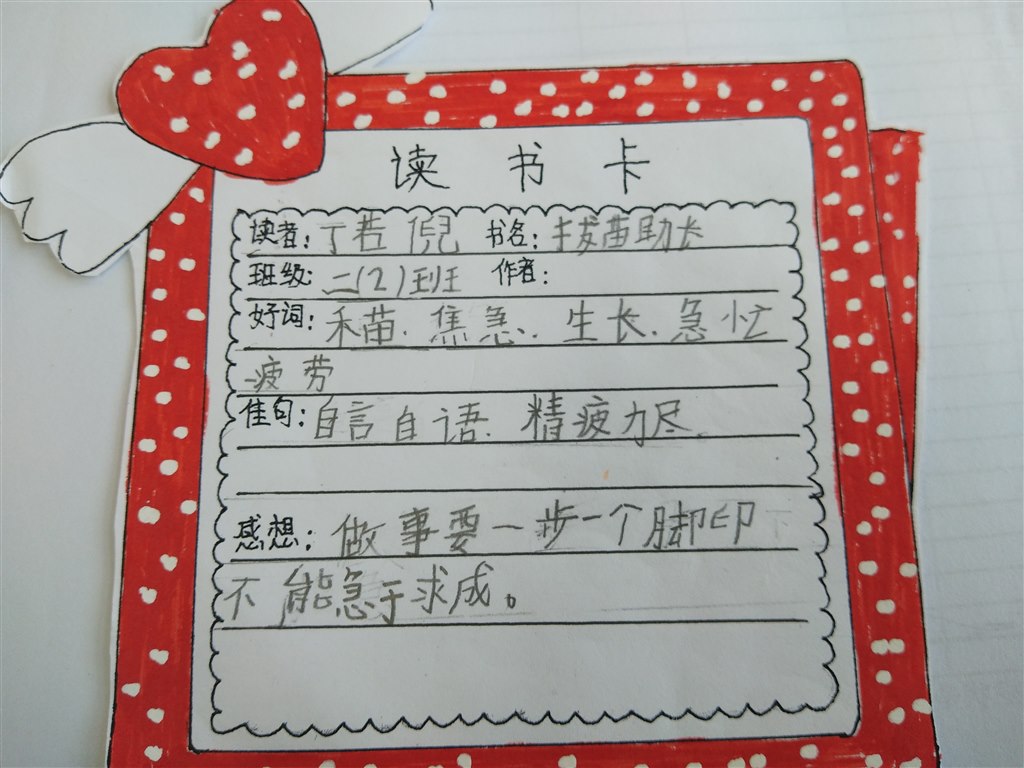 读书卡
读者:丁若倪 书名:拔苗助长
班级:二(2)班 作者:
好词:禾苗.焦急.生长.急忙
疲劳
佳句:自言自语.精疲力尽.
感想:做事要一步一个脚印
不能急于求成。